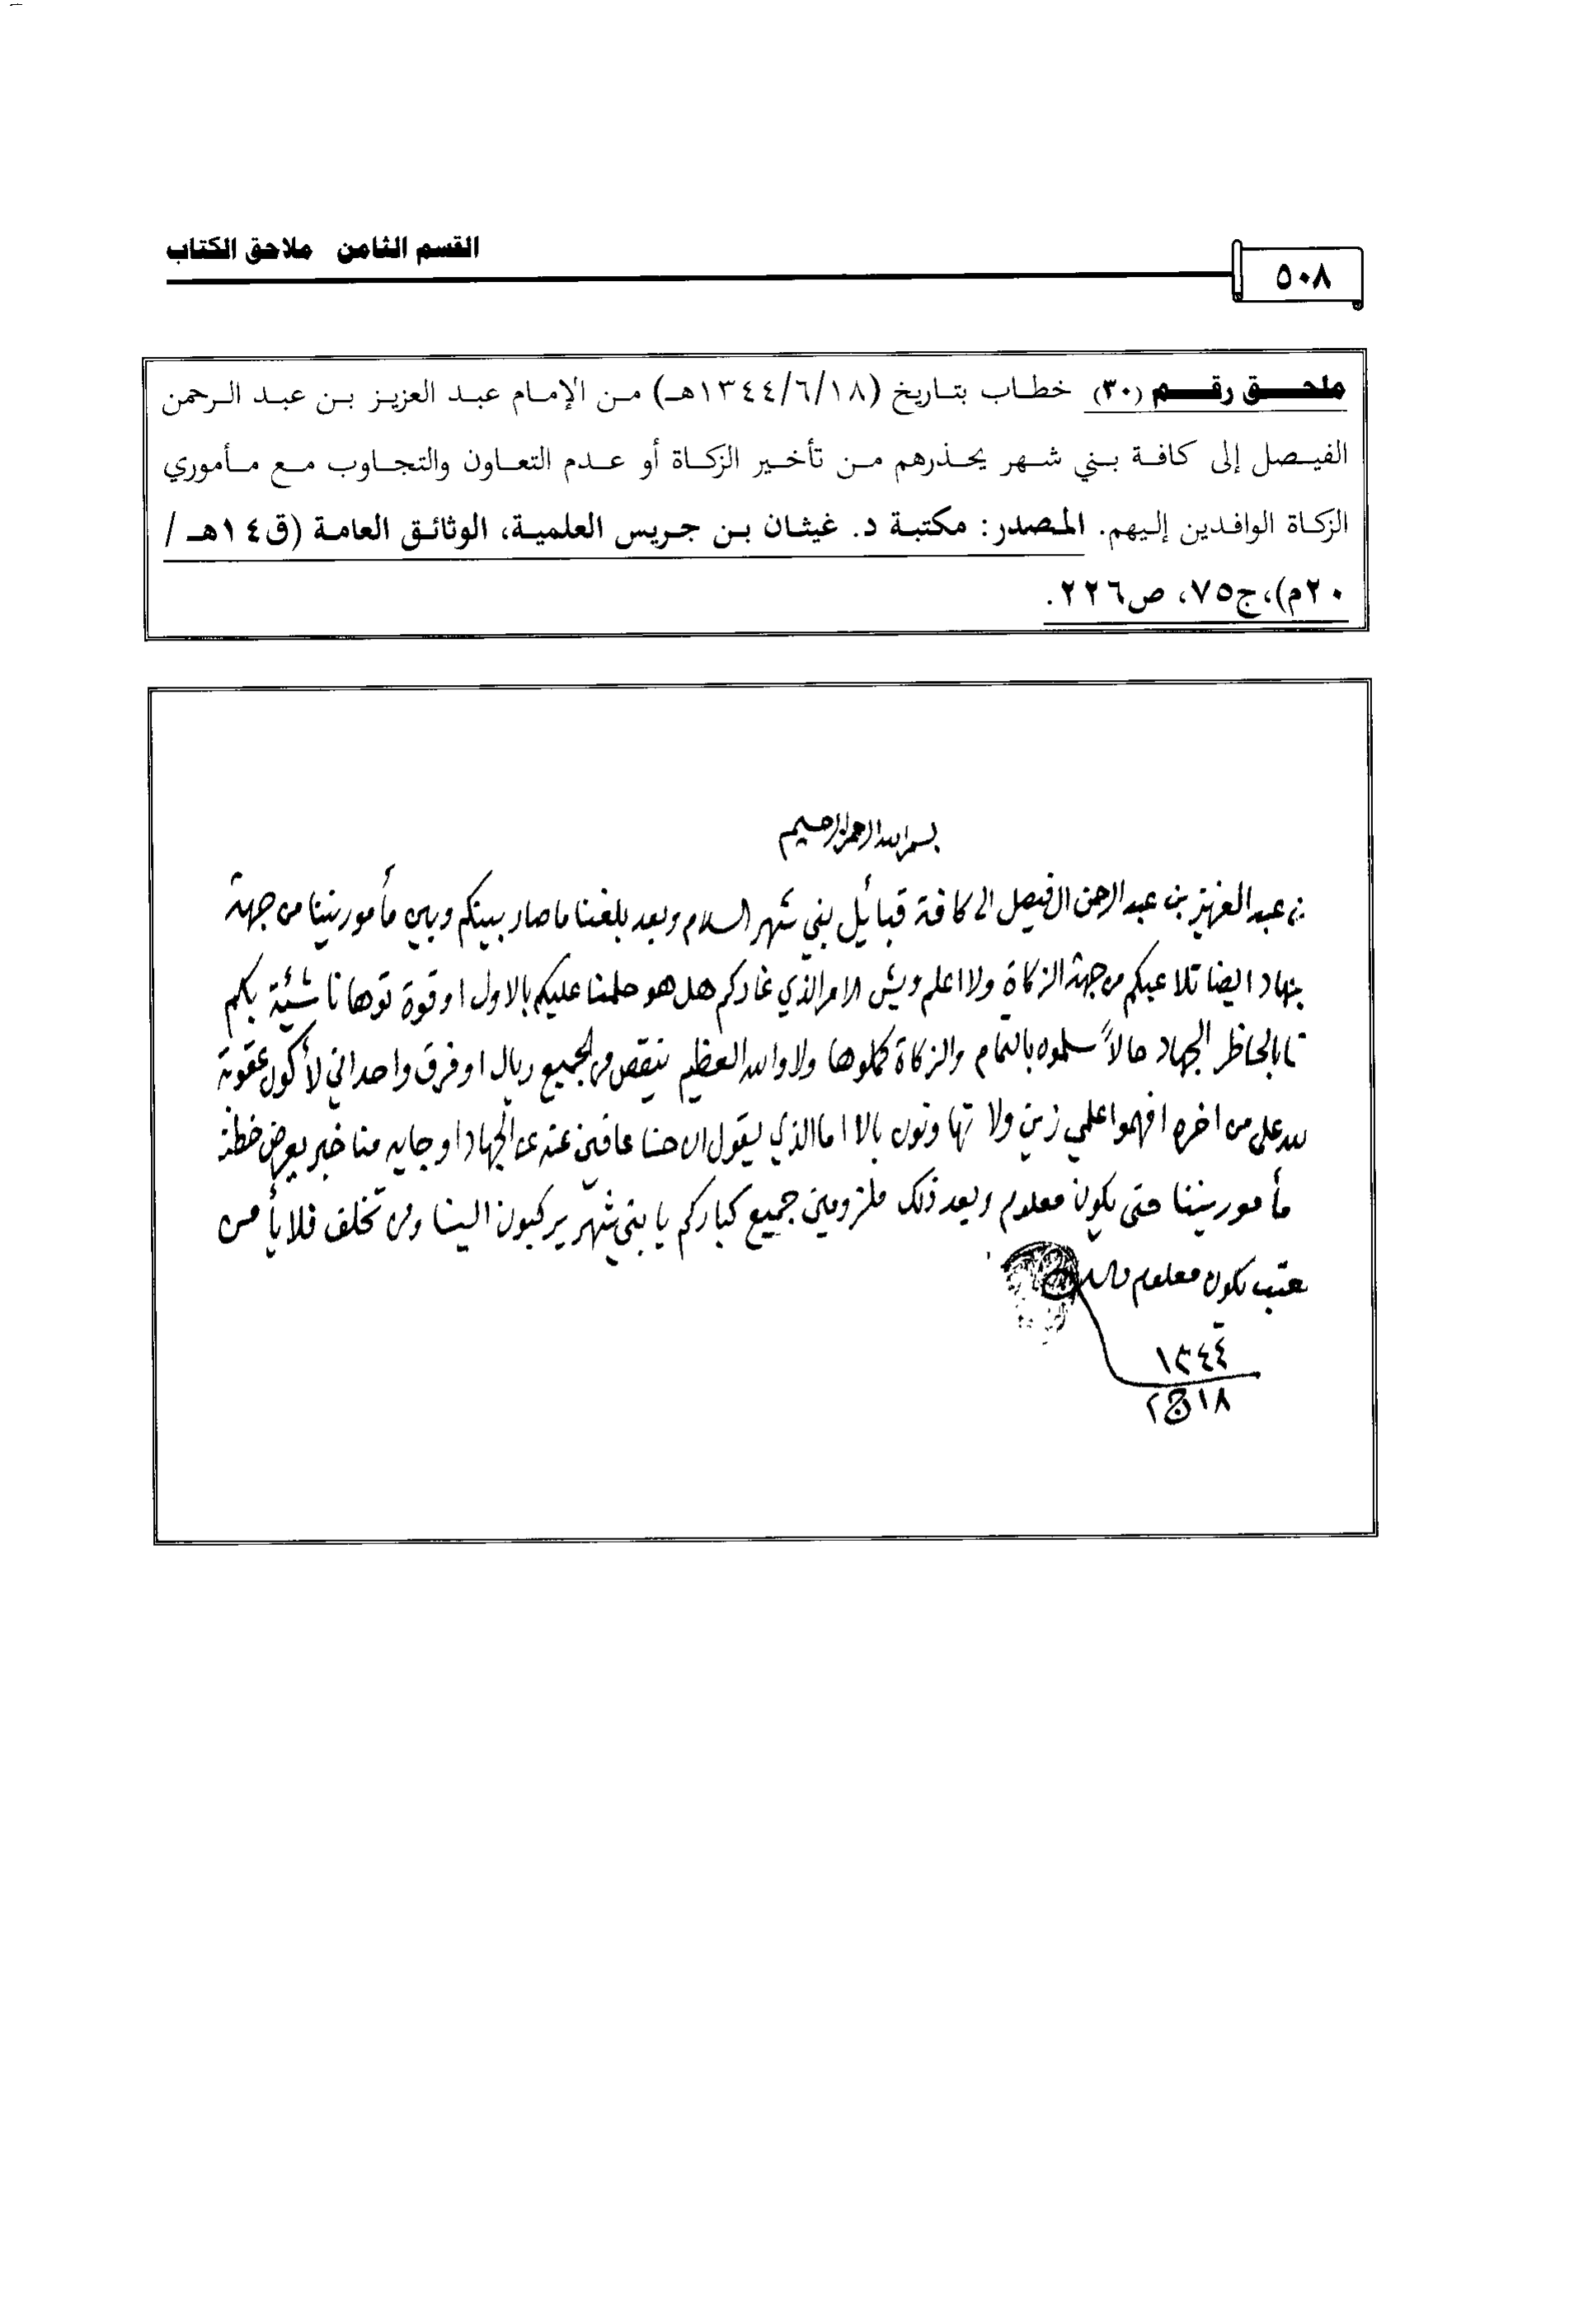 القسم الثامن ملاحق الكتاب
٥٠٨
ملحـــق رقـــم (٣٠) خطـاب بتـاريخ (١٣٤٤/٦/١٨هـ) مـن الإمـام عبـد العزيـز بـن عبـد الـرحمن
الفيـصل إلى كافـة بـني شـهر يحـذرهم مـن تأخـير الزكـاة أو عـدم التعـاون والتجـاوب مـع مـأموري
الزكـاة الوافـدين إلـيهم. المـصدر: مكتبـة د. غيثـان بـن جـريس العلميـة، الوثائـق العامـة (ق١٤هـ /
٢٠م)،ج٧٥، ص٢٢٦.
بسم الله الرحمن الرحيم
عبد العزيز بن عبد الرحمن الفيصل الى كافة قبائل بني شهر السلام وبعد بلغنا ما صار بينكم وبين مأمورينا من جهة
ايضا تلاعبكم من جهة الزكاة ولا اعلم ويش الامر الذي غاركم هل هو حلمنا عليكم بالاول او قوة توها ناشئة بكم
الجهاد حالاً سلموه بالتمام والزكاة كملوها ولا والله العظيم ينقص من الجميع ريال او فرق واحد اني لأكون عقوبة
على من اخره افهموا علمي زين ولا تهاونون بالا اما الذي يقول ان حنا عافين عنه عن الجهاد او جايه منا خبر يعرض خطنه
مأمورينا حتى يكون معلوم وبعد ذلك ملزومين جميع كباركم يا بني شهر يركبون الينا ومن تخلف فلا يأمن
يكون معلوم والسلام
١٣٤٤
١٨ ج ٢